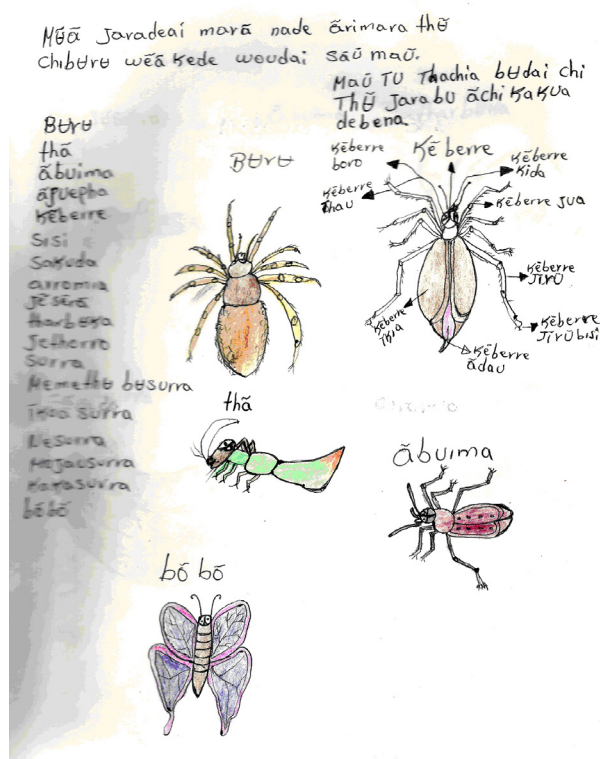 Mʉ̃ã Jaradeaí marã nade ãrimara thʉ̃
Chibʉrʉ wẽã Kede woudai Sãũ maũ.
Maũ TU Thachia bʉdai chi
Thʉ̃ Jarabu ãchi KaKua
debena.
Bʉrʉ
thã
ãbuima
ãJuepha
Kẽberre
Sisi
Sakuda
arromia
Jẽsẽrã
Jethorro
Surra
Memethʉ bʉsurra
Nesurra
Mojausurra
Kokasurra
bõbõ
Bʉrʉ
Kẽberre
boro
Kẽ berre
Kẽberre
Kida
Kẽberre
Thau
Kẽberre Jua
Kẽberre
Jĩrũ
Kẽberre
Jĩrũbisi
Kẽberre
ĩkia
Kẽberre
ãdau
thã
ãbuima
bõ bõ